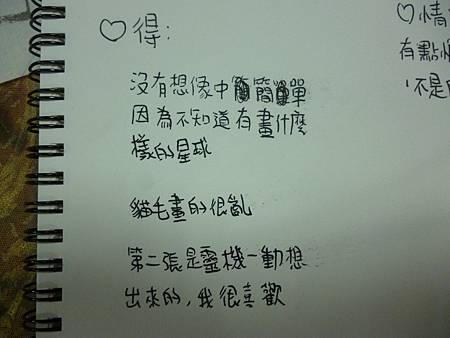 ♡得：
沒有想像中簡單
因為不知道有畫什麼
樣的星球
貓毛畫的很亂
第二張是靈機一動想
出來的，我很喜歡
♡情
有點
不是